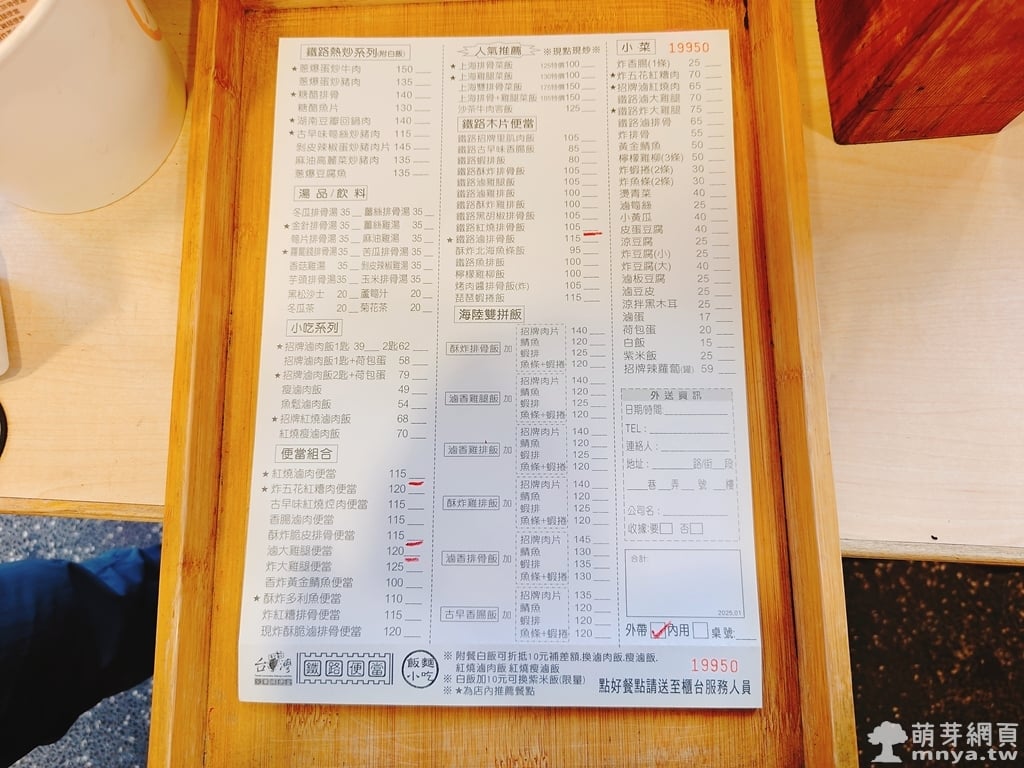 鐵路熱炒系列(附白飯)
★蔥爆蛋炒牛肉 150
蔥爆蛋炒豬肉 135
★糖醋排骨 140
糖醋魚片 130
★湖南豆瓣回鍋肉 140
★古早味筍絲炒豬肉 115
剝皮辣椒蛋炒豬肉片 145
麻油高麗菜炒豬肉 135
蔥爆豆腐魚 135
湯品/飲料
冬瓜排骨湯 35 薑絲排骨湯 35
★金針排骨湯 35 薑絲雞湯 35
筍片排骨湯 35 麻油雞湯 35
★蘿蔔排骨湯 35 苦瓜排骨湯 35
香菇雞湯 35 剝皮辣椒雞湯 35
芋頭排骨湯 35 玉米排骨湯 35
黑松沙士 20 蘆筍汁 20
冬瓜茶 20 菊花茶 20
小吃系列
★招牌滷肉飯1匙 39 2匙62
招牌滷肉飯1匙+荷包蛋 58
★招牌滷肉飯2匙+荷包蛋 79
瘦滷肉飯 49
魚鬆滷肉飯 54
★招牌紅燒滷肉飯 68
紅燒瘦滷肉飯 70
便當組合
★紅燒滷肉便當 115
★炸五花紅糟肉便當 120
古早味紅燒焢肉便當 115
香腸滷肉便當 115
酥炸脆皮排骨便當 115
滷大雞腿便當 120
炸大雞腿便當 125
香炸黃金鯖魚便當 100
★酥炸多利魚便當 110
炸紅糟排骨便當 115
現炸酥脆滷排骨便當 120
人氣推薦 ※現點現炒※
★上海排骨菜飯 125特價100
★上海雞腿菜飯 130特價100
上海雙排骨菜飯 175特價150
上海排骨+雞腿菜飯 185特價150
沙茶牛肉燴飯 125
鐵路木片便當
鐵路招牌里肌肉飯 105
鐵路古早味香腸飯 85
鐵路蝦排飯 80
鐵路酥炸排骨飯 105
鐵路滷雞腿飯 105
鐵路滷雞排飯 100
鐵路酥炸雞排飯 100
鐵路黑胡椒排骨飯 105
鐵路紅燒排骨飯 105
★鐵路滷排骨飯 115
酥炸北海魚條飯 95
鐵路魚排飯 100
檸檬雞柳飯 100
烤肉醬排骨飯(炸) 105
琵琶蝦捲飯 115
海陸雙拼飯
酥炸排骨飯 加
招牌肉片 140
鯖魚 120
蝦排 125
魚條+蝦捲 120
滷香雞腿飯 加
招牌肉片 140
鯖魚 120
蝦排 125
魚條+蝦捲 120
滷香雞排飯 加
招牌肉片 140
鯖魚 120
蝦排 125
魚條+蝦捲 120
酥炸雞排飯 加
招牌肉片 140
鯖魚 120
蝦排 125
魚條+蝦捲 120
滷香排骨飯 加
招牌肉片 145
鯖魚 130
蝦排 135
魚條+蝦捲 130
古早香腸飯 加
招牌肉片 135
鯖魚 120
蝦排 120
魚條+蝦捲 120
小菜 19950
炸香腸(1條) 25
★炸五花紅糟肉 70
★招牌滷紅燒肉 65
鐵路滷大雞腿 70
★鐵路炸大雞腿 75
鐵路滷排骨 65
炸排骨 55
黃金鯖魚 50
檸檬雞柳(3條) 50
炸蝦捲(2條) 30
炸魚條(2條) 30
燙青菜 40
滷筍絲 25
小黃瓜 40
皮蛋豆腐 40
涼豆腐 25
炸豆腐(小) 25
炸豆腐(大) 40
滷板豆腐 25
滷豆皮 25
涼拌黑木耳 25
滷蛋 17
荷包蛋 20
白飯 15
紫米飯 25
招牌辣蘿蔔(罐) 59
外送資訊
日期/時間:
TEL:
連絡人:
地址: 路/街 段
巷 弄 號 樓
公司名:
收據:要 否
合計:
2025.01
外帶 內用 桌號:
台灣
鐵路便當
飯麵
小吃
※ 附餐白飯可折抵10元補差額.換滷肉飯.瘦滷飯.
紅燒滷肉飯 紅燒瘦滷飯
※ 白飯加10元可換紫米飯(限量)
※ ★為店內推薦餐點
19950
點好餐點請送至櫃台服務人員
萌芽網頁
mnya.tw